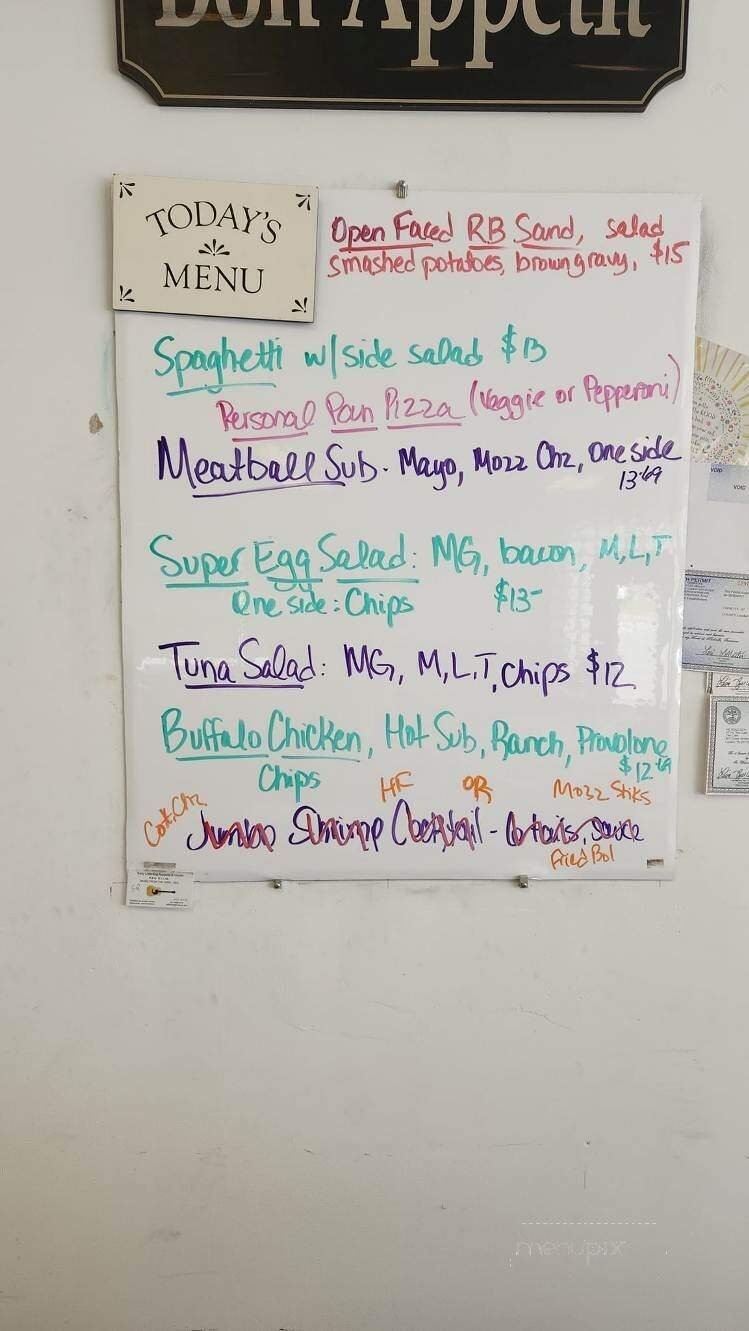 Bon Appetit
TODAY'S
MENU
Open Faced RB Sand, salad
smashed potatoes, brown gravy, $15
Spaghetti w/side salad $13
Personal Pan Pizza (Veggie or Pepperoni)
Meatball Sub. Mayo, Mozz Chz, One side
13.69
Super Egg Salad: MG, bacon, M,L,T
One side: Chips $13-
Tuna Salad: MG, M,L,T, Chips $12
Buffalo Chicken, Hot Sub, Ranch, Provolone
$12.69
Chips
HF OR Mozz Stiks
Cott.Chz
Jumbo Shrimp Cocktail -
Fried Bol
VOID
VOID
menupix